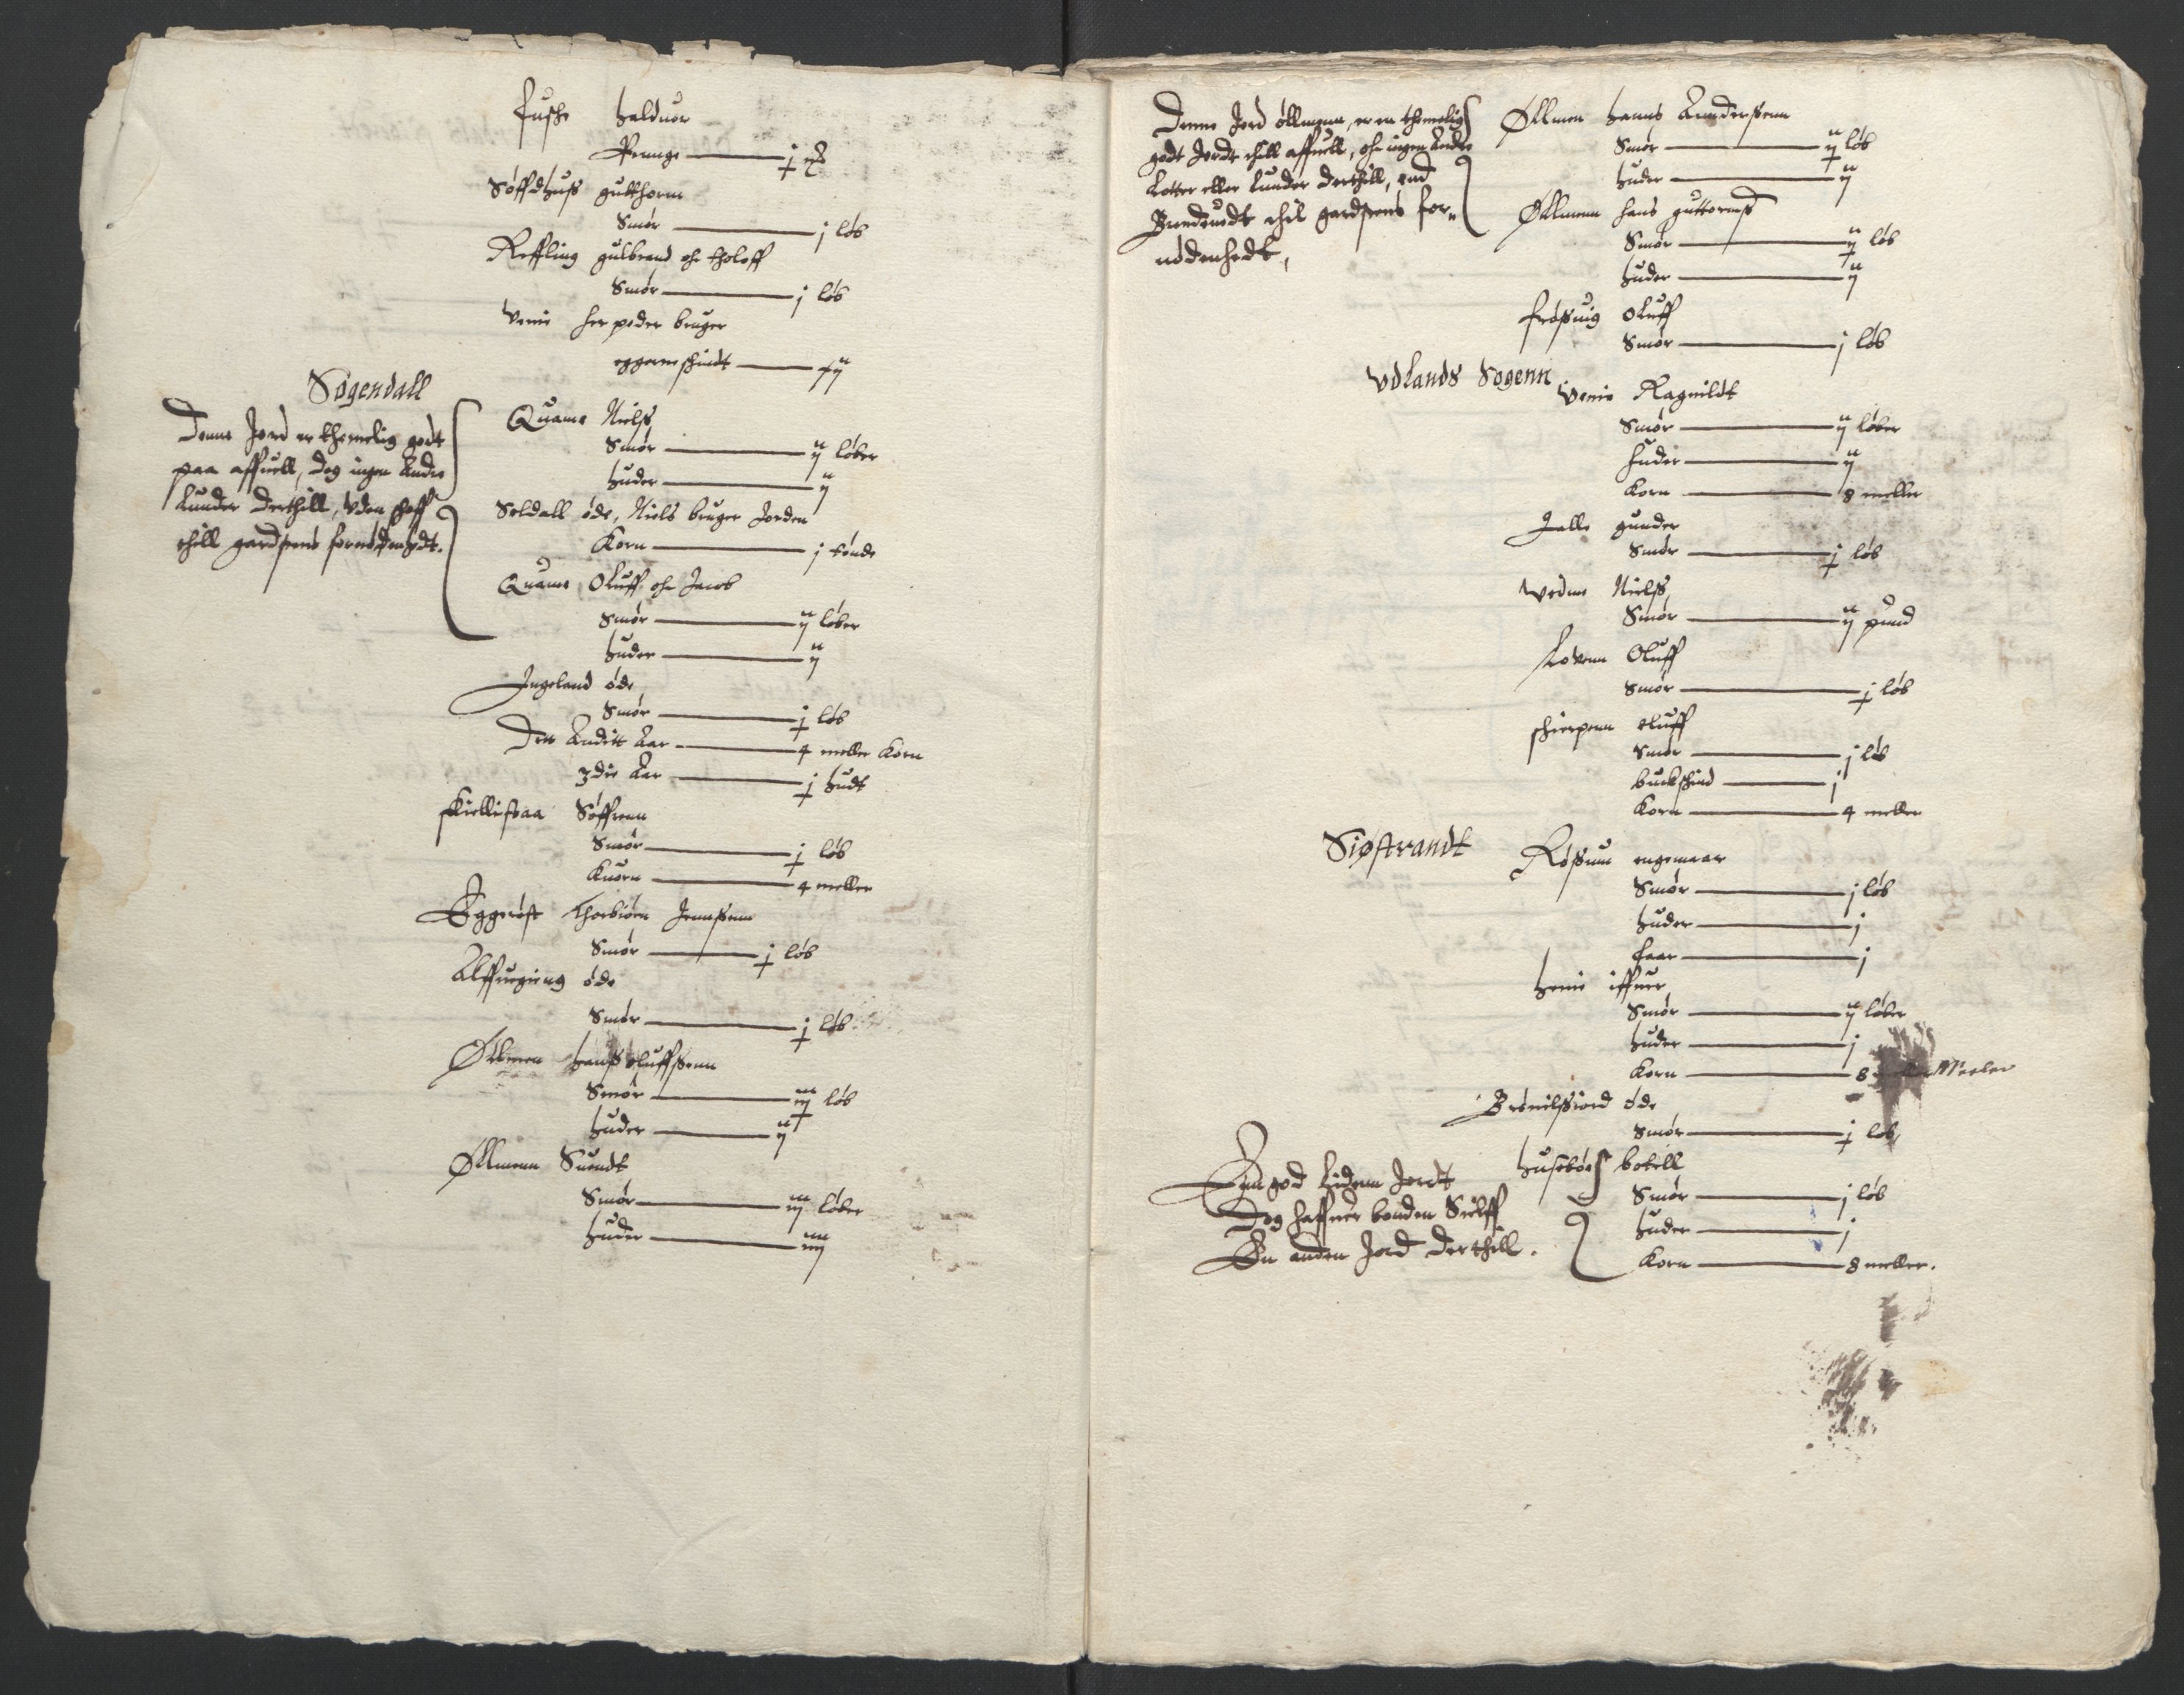 Fusche Halduor
Pennge — j
Søffdhuß gutthorm
Smør — j løb
Reffling gulbrand och tholoff
Smør — j løb
Venie her peder bruger
eggerneschindt — ij
Søgendall
Denne Jord er themelig godt
paa affuell, dog ingen Andre
Lunder derthill, vden schoff
thill gardsens fornødenhedt.
Quame Nielß
Smør — ij løber
Huder — ij
Seldall øde, Niels bruger Jorden
Korn — j tønde
Quame Oluff och Jacob
Smør — ij løber
Huder — ij
Ingeland øde
Smør — j løb
Dett Andett Aar — 4 meller Korn
3die Aar — j Hudt
Kiellistaa Søffrenn
Smør — j løb
Kuorn — 4 meller
Eggerøst Thorbiørn Jennsenn
Smør — j løb
Alffuegieng øde
Smør — j løb
Øllmen Hanß oluffsenn
Smør — iij løb
Huder — ij
Øllmenn Suendt
Smør — iij løber
Huder — iiij
Denne Jord øllmenn, er en themelig
godt Jordt thill affuell, och ingen Andre
Lotter eller Lunder derthill, end
Brendeuedt thil gardsens for„
nødenhedt,
Øllmen Hanns Anndersenn
Smør — ij løb
Huder — ij
Øllmenn Hans guttormß
Smør — ij løb
Huder — ij
Frøsuig Oluff
Smør — j løb
Vdlands Sogenn
Venie Ragnildt
Smør — ij løber
Huder — ij
Korn — 8 meller
Jalle gunder
Smør — j løb
Vedme Nielß
Smør — ij pund
Lovenn Oluff
Smør — j løb
schierpenn oluff
Smør — j løb
buckschind — j
Korn — 4 meller
Siøstrandt
Røsum engemaar
Smør — j løb
Huder — j
Faar — j
Henie iffuer
Smør — ij løber
Huder — j
Korn — 8 Meeler
Brønilsiord øde
Smør — j løb
Husebøe botell
Smør — j løb
Huder — j
Korn — 8 meller.
Enn god Lidenn Jordt
Dog haffuer bonden Sielff
En anden Jord derthill.